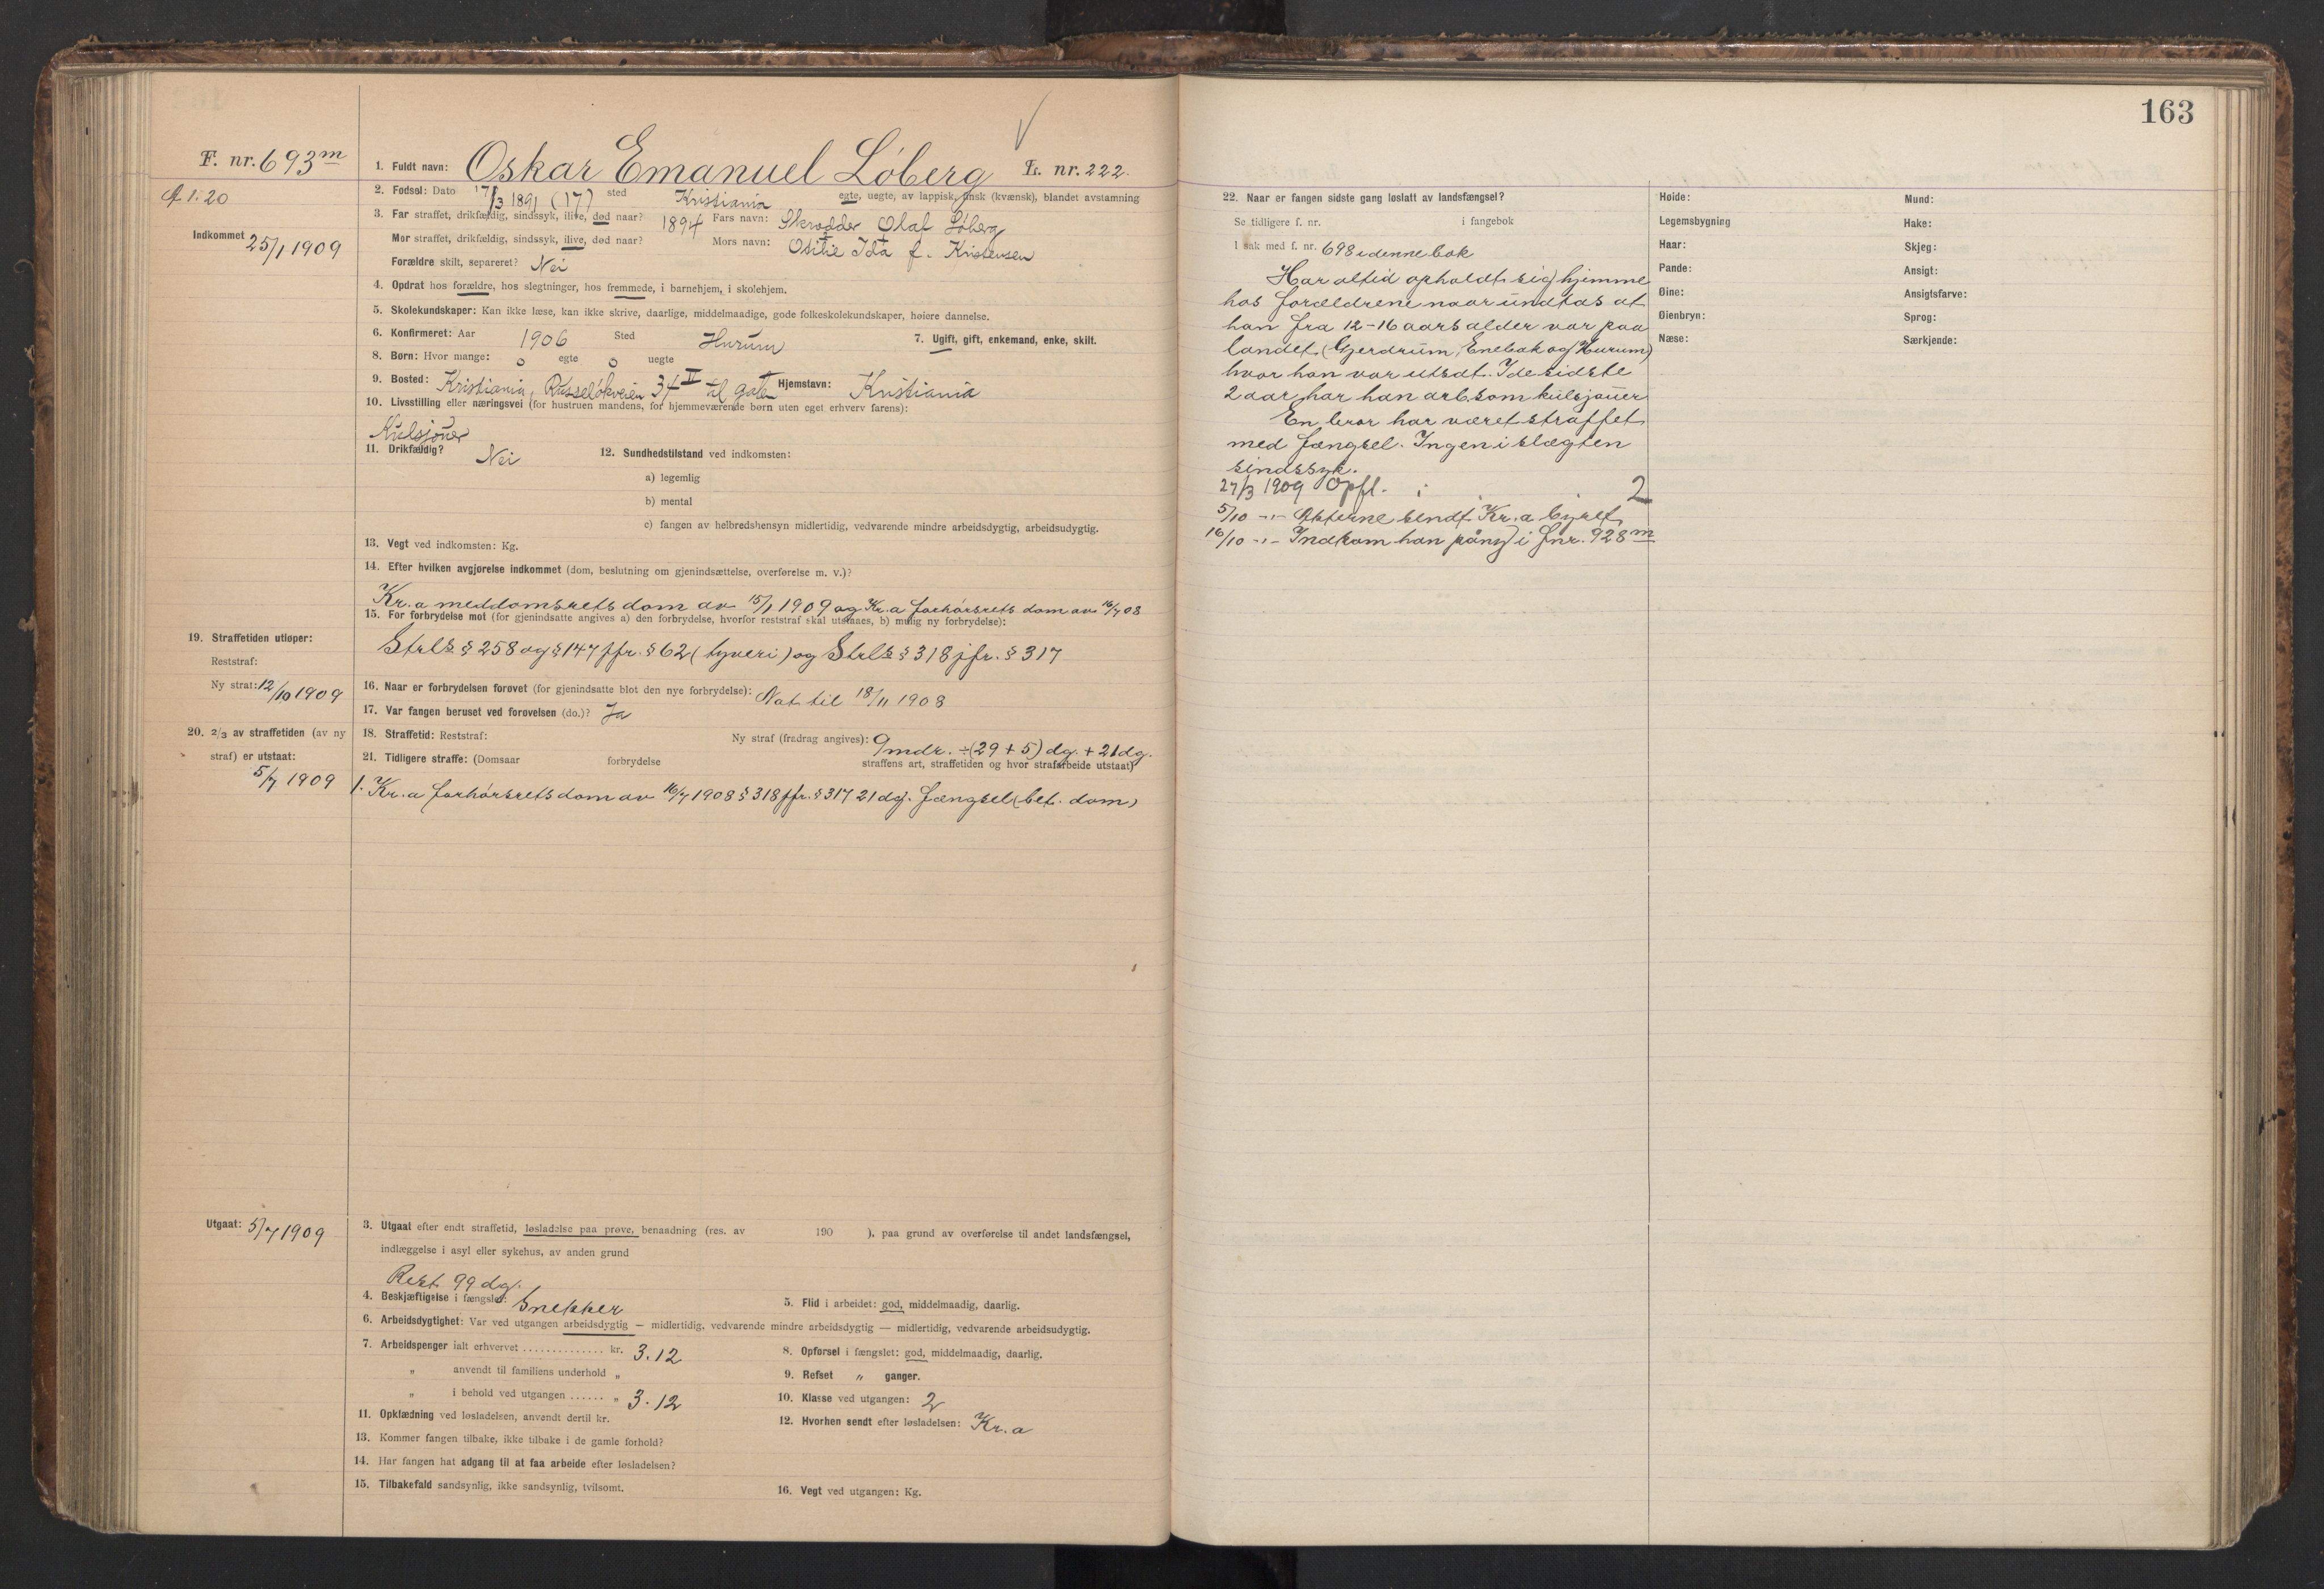 163
F. nr. 693 m
1. Fuldt navn: Oskar Emanuel Løberg L. nr. 222.
1: 20
2. Fødsel: Dato 17/3 1891 (17) sted Kristiania egte, uegte, av lappisk, finsk (kvænsk), blandet avstamning
Indkommet 25/1 1909
3. Far straffet, drikfældig, sindssyk, ilive, død naar? 1894 Fars navn: Skrædder Olaf Løberg
Mor straffet, drikfældig, sindssyk, ilive, død naar? Mors navn: Otilie Ida f. Kristensen
Forældre skilt, separeret? Nei
4. Opdrat hos forældre, hos slegtninger, hos fremmede, i barnehjem, i skolehjem.
5. Skolekundskaper: Kan ikke læse, kan ikke skrive, daarlige, middelmaadige, gode folkeskolekundskaper, høiere dannelse.
6. Konfirmeret: Aar 1906 Sted Hurum 7. Ugift, gift, enkemand, enke, skilt.
8. Børn: Hvor mange: 0 egte 0 uegte
9. Bosted: Kristiania, Russeløkveien 34 II til gaten Hjemstavn: Kristiania
10. Livsstilling eller næringsvei (for hustruen mandens, for hjemmeværende børn uten eget erhverv farens):
Kulsjouer
11. Drikfældig? Nei 12. Sundhedstilstand ved indkomsten:
a) legemlig
b) mental
c) fangen av helbredshensyn midlertidig, vedvarende mindre arbeidsdygtig, arbeidsudygtig.
13. Vegt ved indkomsten: Kg.
14. Efter hvilken avgjørelse indkommet (dom, beslutning om gjenindsættelse, overførelse m. v.)?
Kr.a meddomsrets dom av 15/1 1909 og Kr.a forhørsrets dom av 16/7 08
15. For forbrydelse mot (for gjenindsatte angives a) den forbrydelse, hvorfor reststraf skal utstaaes, b) mulig ny forbrydelse):
Strl's § 258 og § 147 jfr. § 62 (tyveri) og Strl's § 318 jfr. § 317
19. Straffetiden utløper:
Reststraf:
Ny straf: 12/10 1909
16. Naar er forbrydelsen forøvet (for gjenindsatte blot den nye forbrydelse): Nat til 18/11 1908
17. Var fangen beruset ved forøvelsen (do.)? Ja
20. 2/3 av straffetiden (av ny
straf) er utstaat:
5/7 1909
18. Straffetid: Reststraf: Ny straf (fradrag angives): 9 mdr. ÷ (29 + 5) dg. + 21 dg.
21. Tidligere straffe: (Domsaar forbrydelse straffens art, straffetiden og hvor strafarbeide utstaat)
1. Kr.a forhørsrets dom av 16/7 1908 § 318 jfr. § 317 21 dg. fængsel (bet. dom)
Utgaat: 5/7 1909
3. Utgaat efter endt straffetid, løsladelse paa prøve, benaadning (res. av 190 ), paa grund av overførelse til andet landsfængsel,
indlæggelse i asyl eller sykehus, av anden grund
Rest 99 dg.
4. Beskjæftigelse i fængslet: Snekker 5. Flid i arbeidet: god, middelmaadig, daarlig.
6. Arbeidsdygtighet: Var ved utgangen arbeidsdygtig — midlertidig, vedvarende mindre arbeidsdygtig — midlertidig, vedvarende arbeidsudygtig.
7. Arbeidspenger ialt erhvervet .............. kr. 3.12 8. Opførsel i fængslet: god, middelmaadig, daarlig.
„ anvendt til familiens underhold „ 9. Refset „ ganger.
„ i behold ved utgangen ...... „ 3.12 10. Klasse ved utgangen: 2
11. Opklædning ved løsladelsen, anvendt dertil kr. 12. Hvorhen sendt efter løsladelsen: Kr.a
13. Kommer fangen tilbake, ikke tilbake i de gamle forhold?
14. Har fangen hat adgang til at faa arbeide efter løsladelsen?
15. Tilbakefald sandsynlig, ikke sandsynlig, tvilsomt. 16. Vegt ved utgangen: Kg.
22. Naar er fangen sidste gang løslatt av landsfængsel?
Se tidligere f. nr. i fangebok
I sak med f. nr. 698 i denne bok
Har altid opholdt sig hjemme
hos forældrene naar undtas at
han fra 12-16 aars alder var paa
landet (Gjerdrum, Enebak og Hurum)
hvor han var utsat. I de sidste
2 aar har han arb. som kulsjouer
En bror har været straffet
med fængsel. Ingen i slægten
sindssyk.
27/3 1909 Opfl. i 2
5/10 -"- Akterne sendt Kr.a byret
16/10 -"- Indkom han påny i fnr. 928 m
Høide:
Legemsbygning
Haar:
Pande:
Øine:
Øienbryn:
Næse:
Mund:
Hake:
Skjeg:
Ansigt:
Ansigtsfarve:
Sprog:
Særkjende: